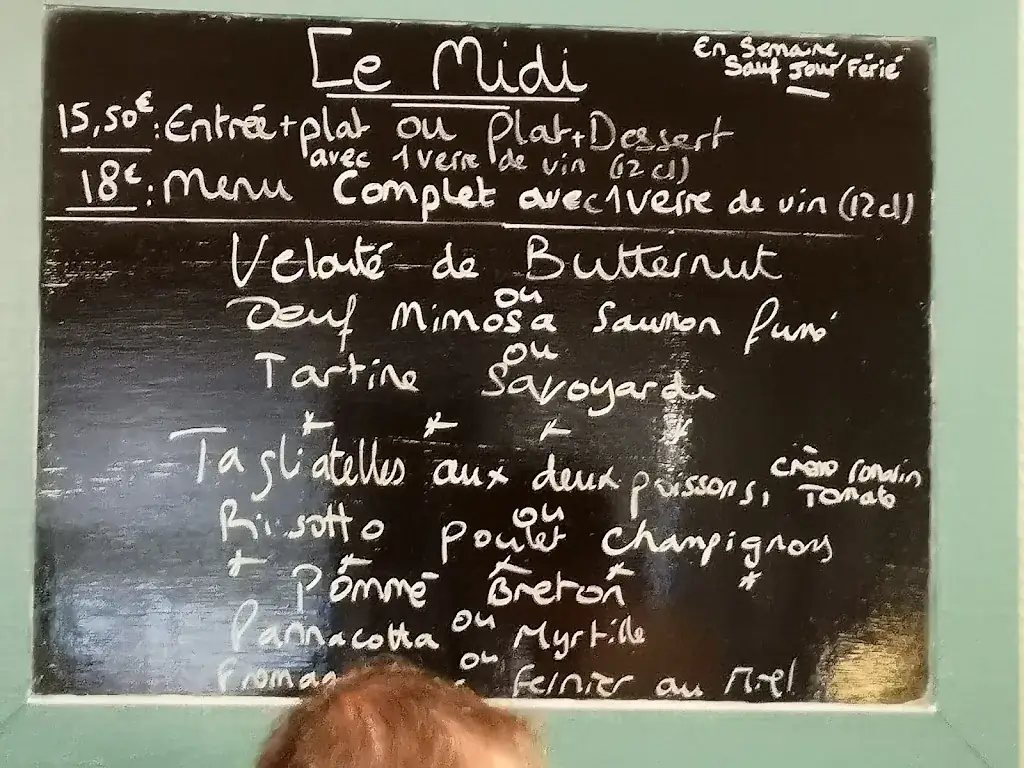 Le Midi
En Semaine,
Sauf Jour Férié
15,50€: Entrée + plat ou Plat + Dessert
avec 1 verre de vin (12 cl)
18€: Menu Complet avec 1 verre de vin (12 cl)
Velouté de Butternut
ou
Oeuf Mimosa Saumon fumé
ou
Tartine Savoyarde
Tagliatelles aux deux poissons, crème
Tomate
ou
Rissotto poulet champignons
Pommé Breton
ou
Pannacotta Myrtille
ou
Fermier au Miel